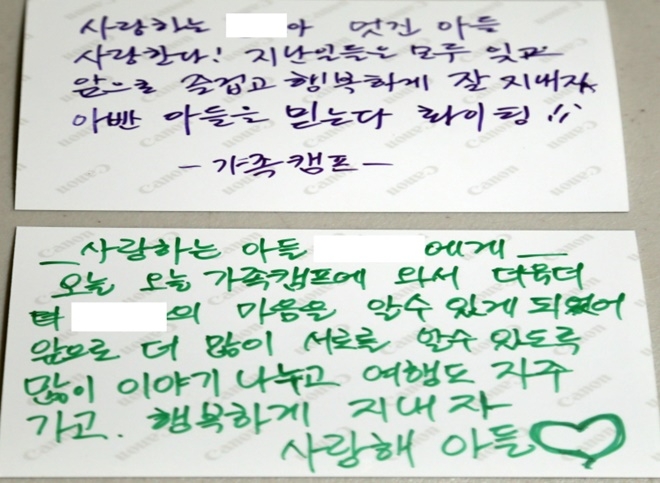 사랑하는 아 멋긴 아들
사랑한다! 지난일들은 모두 잊고
앞으로 즐겁고 행복하게 잘 지내자
아빤 아들을 믿는다 화이팅!!
- 가족캠프 -
사랑하는 아들 에게
오늘 오늘 가족캠프에 와서 더욱더
의 마음을 알수 있게 되었어
앞으로 더 많이 서로를 알수 있도록
많이 이야기 나누고 여행도 자주
가고. 행복하게 지내자
사랑해 아들♡